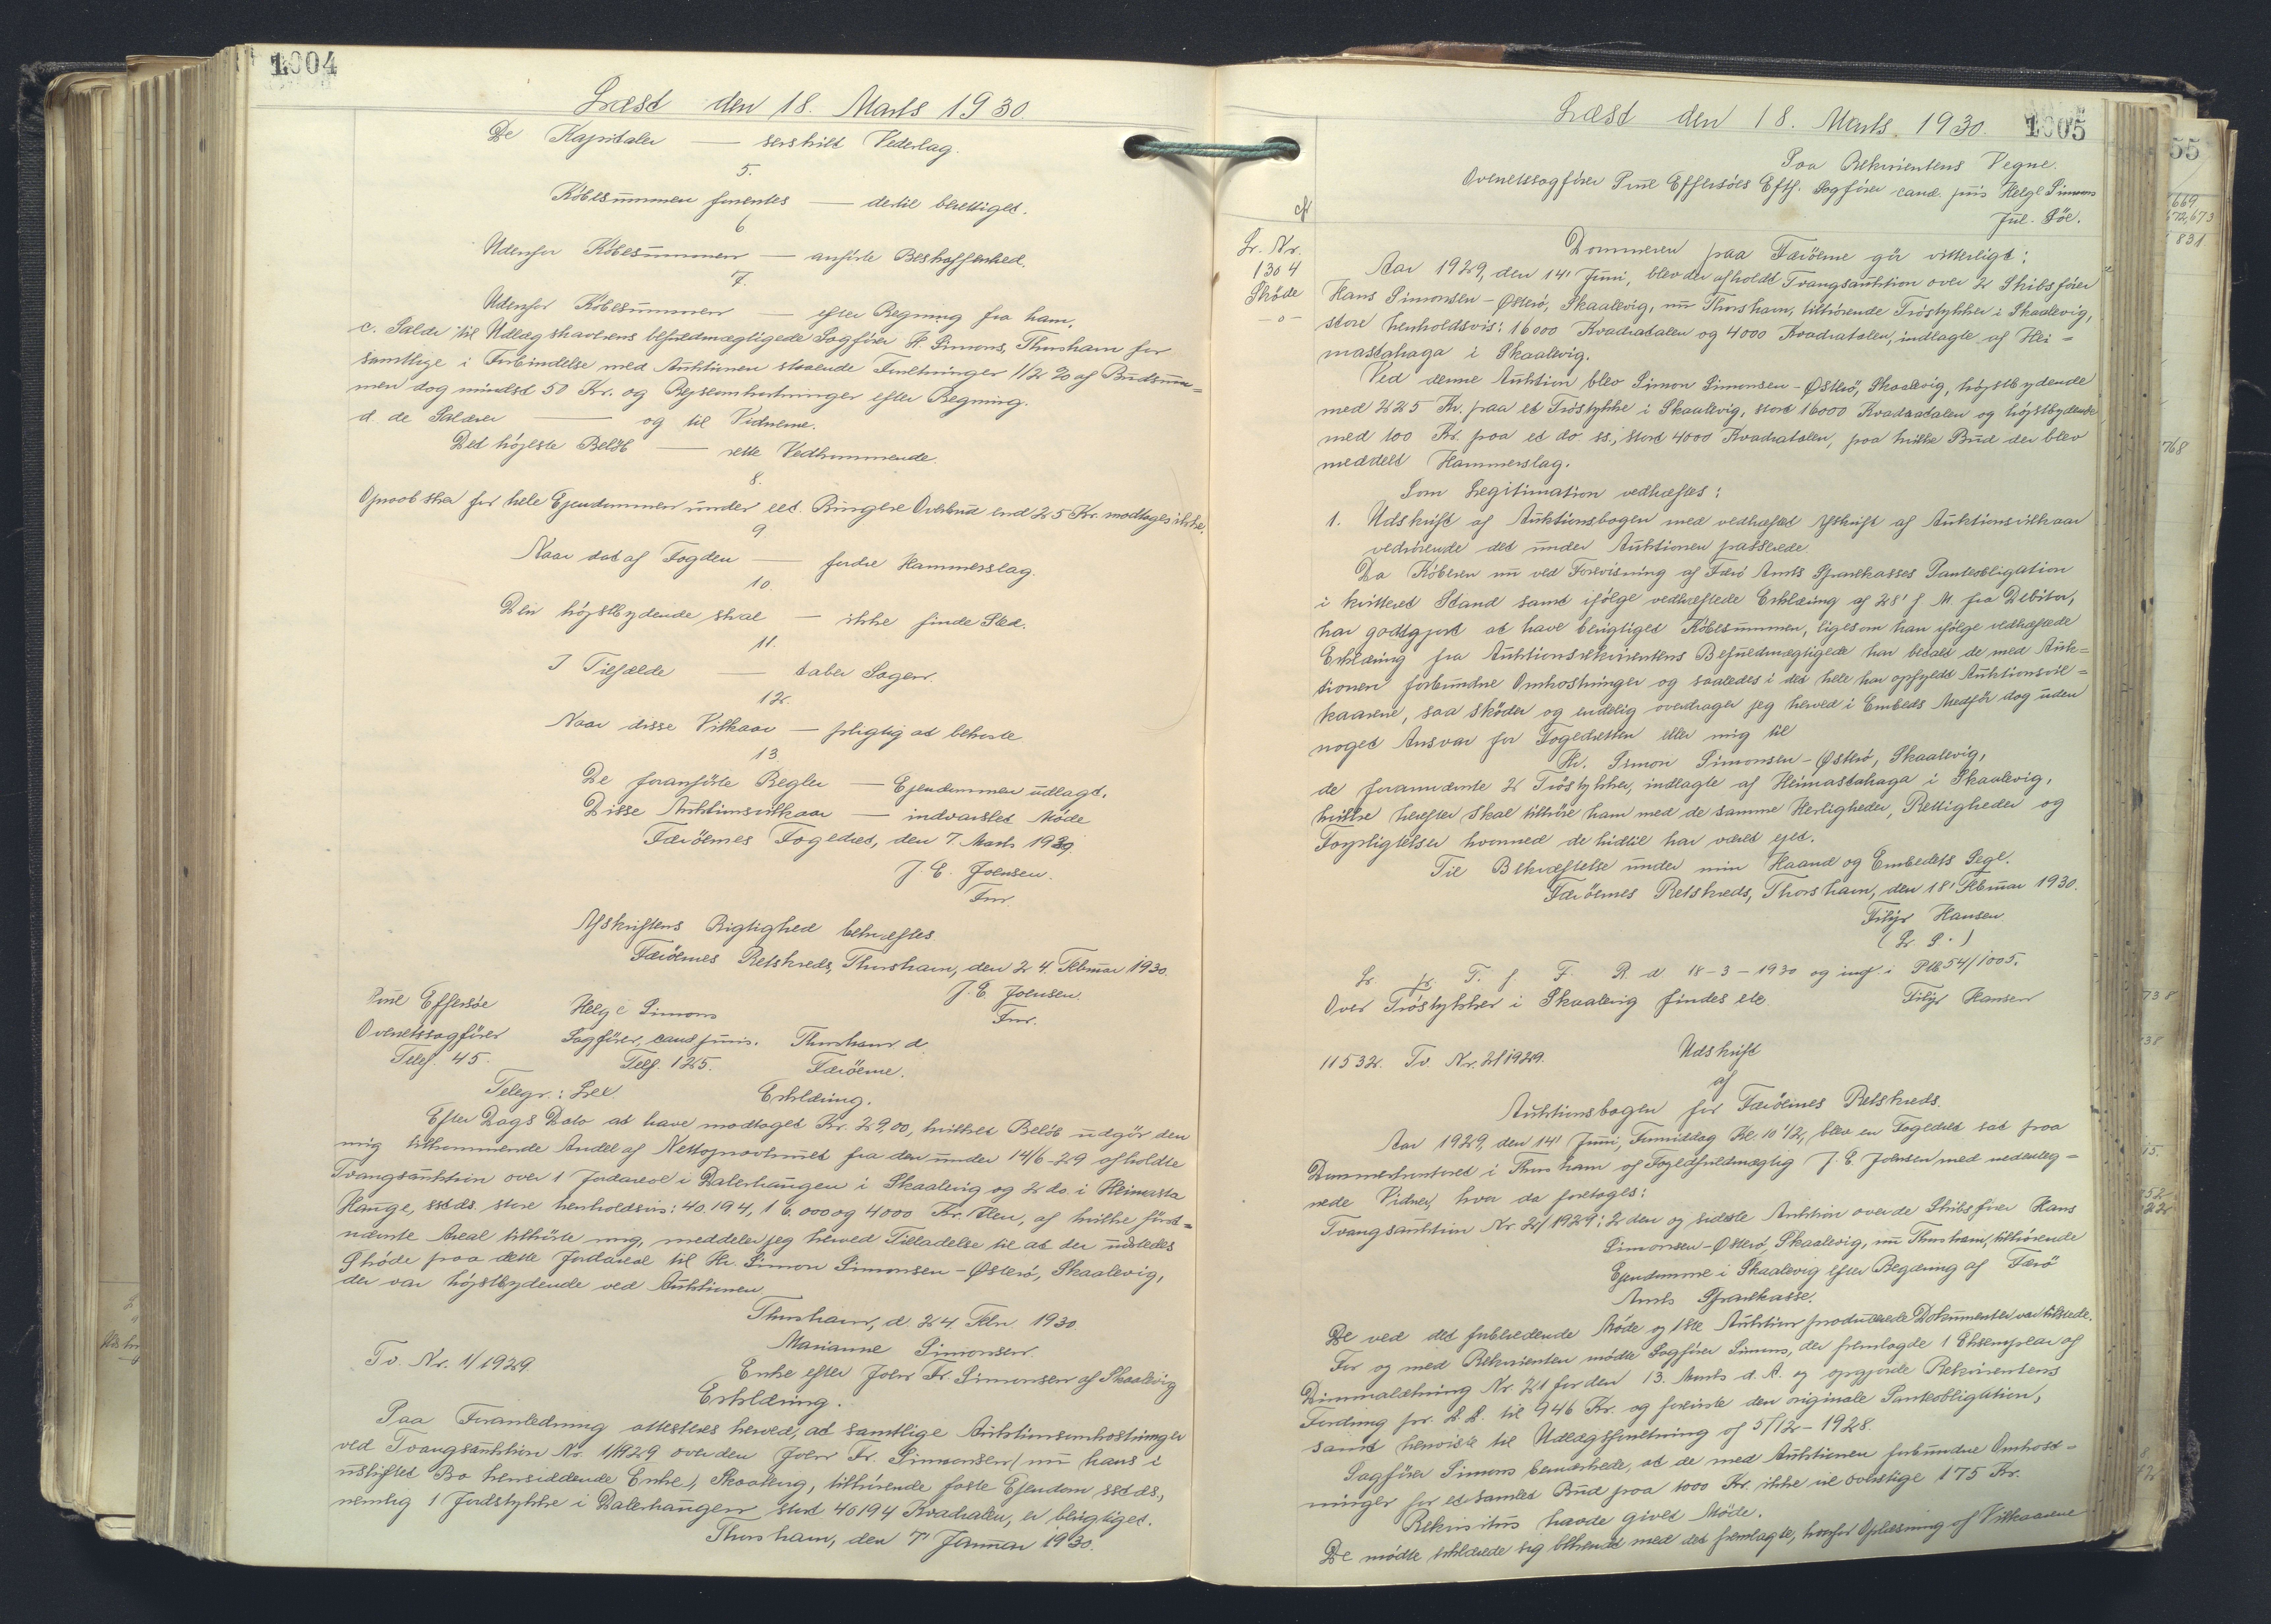 1004
Læst den 18. Marts 1930.
De Kapitaler — serskilt Vederlag.
5.
Købesummen forrentes — dertil berettiget.
6
Udenfor Købesummen — anførte Beskaffenhed.
7.
Udenfor Købesummen — efter Regning fra ham.
c. Salær til Udlægshaverens befuldmægtigede Sagfører H. Simons, Thorshavn for
samtlige i Forbindelse med Auktionen staaende Forretninger 1 1/2 % af Budsum=
men dog mindst 50 Kr. og Rejseomkostninger efter Regning.
d. de Salærer — og til Vidnerne.
Det højeste Beløb — rette Vedkommende.
8.
Opraab sker for hele Ejendommen under eet. Ringere Overbud end 25 Kr. modtages ikke.
9
Naar det af Fogden — fordre Hammerslag.
10.
Den højstbydende skal — ikke finde Sted.
11.
I Tilfælde — taber Sagen.
12.
Naar disse Vilkaar — pligtig at bekoste
13
De foranførte Regler — Ejendommen udlagt.
Disse Auktionsvilkaar — indvarslet Møde
Færöernes Fogedret, den 7. Marts 1929.
J. E. Joensen.
Fm.
Afskriftens Rigtighed bekræftes.
Færöernes Retskreds, Thorshavn, den 24. Februar 1930.
J. E. Joensen.
Fm.
Poul Effersøe Helge Simons
Overretssagfører Sagfører, cand. juris. Thorshavn d.
Telef. 45. Telf. 125. Færöerne.
Telegr.: Lex. Erklæring.
Efter Dags Dato at have modtaget Kr. 29,00, hvilket Beløb udgør den
mig tilkommende Andel af Nettoprovenuet fra den under 14/6-29 afholdte
Tvangsauktion over 1 Jordareal i Dalerhaugen i Skaalevig og 2 do. i Heimasta
Hauge, sstds. store henholdsvis: 40.194, 16.000 og 4000 Kv. Alen, af hvilke først=
nævnte Areal tilhørte mig, meddeler jeg herved Tilladelse til at der udstedes
Skøde paa dette Jordareal til Hr. Simon Simonsen-Østerö, Skaalevig,
der var højstbydende ved Auktionen.
Thorshavn, d. 24 Febr. 1930
Marianne Simonsen.
Tv. Nr. 1/1929. Enke efter Joen Fr. Simonsen af Skaalevig
Erklæring.
Paa Foranledning attesteres herved, at samtlige Auktionsomkostninger
ved Tvangsauktion Nr. 1/1929 over den Joen Fr. Simonsen (nu hans i
uskiftet Bo hensiddende Enke), Skaalevig, tilhørende faste Ejendom sstds.,
nemlig 1 Jordstykke i Dalerhaugen stort 40194 Kvadralen, er berigtiget.
Thorshavn, den 7' Januar 1930.
Læst den 18. Marts 1930. 1005
Paa Rekvirentens Vegne.
Overretssagfører Poul Effersöes Eftf. Sagfører cand. juris Helge Simons
Jul. Söe.
Lr. Nr.
1304
Skøde
—o—
Dommeren paa Færöerne gör vitterligt:
Aar 1929, den 14' Juni, blev der afholdt Tvangsauktion over 2 Skibsfører
Hans Simonsen-Østerö, Skaalevig, nu Thorshavn, tilhørende Tröstykker i Skaalevig,
store henholdsvis: 16000 Kvadratalen og 4000 Kvadratalen, indlagte af Hei=
mastahaga i Skaalevig.
Ved denne Auktion blev Simon Simonsen-Østerö, Skaalevig, højstbydende
med 225 Kr. paa et Tröstykke i Skaalevig, stort 16000 Kvadratalen og højstbydende
med 100 Kr. paa et do ss., stort 4000 Kvadratalen, paa hvilke Bud der blev
meddelt Hammerslag.
Som Legitimation vedhæftes:
1. Udskrift af Auktionsbogen med vedhæftet Afskrift af Auktionsvilkaar
vedrörende det under Auktionen passerede.
Da Köberen nu ved Forevisning af Færö Amts Sparekasses Panteobligation
i kvitteret Stand samt ifölge vedhæftede Erklæring af 28' f. M. fra Debitor,
har godtgjort at have berigtiget Købesummen, ligesom han ifölge vedhæftede
Erklæring fra Auktionsrekvirentens Befuldmægtigede har betalt de med Auk=
tionen forbundne Omkostninger og saaledes i det hele har opfyldt Auktionsvil=
kaarene, saa skøder og endelig overdrager jeg herved i Embeds Medför dog uden
noget Ansvar for Fogedretten eller mig til
Hr. Simon Simonsen-Østerö, Skaalevig,
de forannævnte 2 Tröstykker, indlagte af Heimastahaga i Skaalevig,
hvilke herefter skal tilhöre ham med de samme Herligheder, Rettigheder og
Forpligtelser hvormed de hidtil har været ejet.
Til Bekræftelse under min Haand og Embedets Segl.
Færöernes Retskreds, Thorshavn, den 18' Februar 1930.
Filip Hansen.
(L. S.)
L. i T. f. F. R. d. 18-3-1930 og inf. i PtB 54/1005.
Over Tröstykker i Skaalevig findes etc. Filip Hansen
11532. Tv. Nr. 2/1929. Udskrift
af
Auktionsbogen for Færöernes Retskreds.
Aar 1929, den 14' Juni, Formiddag Kl. 10 1/2, blev en Fogedret sat paa
Dommerkontoret i Thorshavn af Fogedfuldmægtig J. E. Joensen med nedenteg=
nede Vidner, hvor da foretoges:
Tvangsauktion Nr. 2/1929: 2den og sidste Auktion over de Skibsfører Hans
Simonsen-Österö, Skaalevig, nu Thorshavn, tilhørende
Ejendomme i Skaalevig efter Begæring af Færö
Amts Sparekasse.
De ved det forberedende Møde og 1ste Auktion producerede Dokumenter var tilstede.
For og med Rekvirenten mødte Sagfører Simons, der fremlagde 1 Eksemplar af
Dimmalætning Nr. 21 for den 13. Marts d. A. og opgjorde Rekvirentens
Fordring pr. D. D. til 946 Kr. og foreviste den originale Panteobligation,
samt henviste til Udlægsforretning af 5/12-1928.
Sagfører Simons bemærkede, at de med Auktionen forbundne Omkost=
ninger for et samlet Bud paa 1000 Kr. ikke vil overstige 175 Kr.
Rekvisitus havde givet Møde.
De mødte erklærede sig bekendt med det fremlagte, hvorfor Oplæsning af Vilkaarene